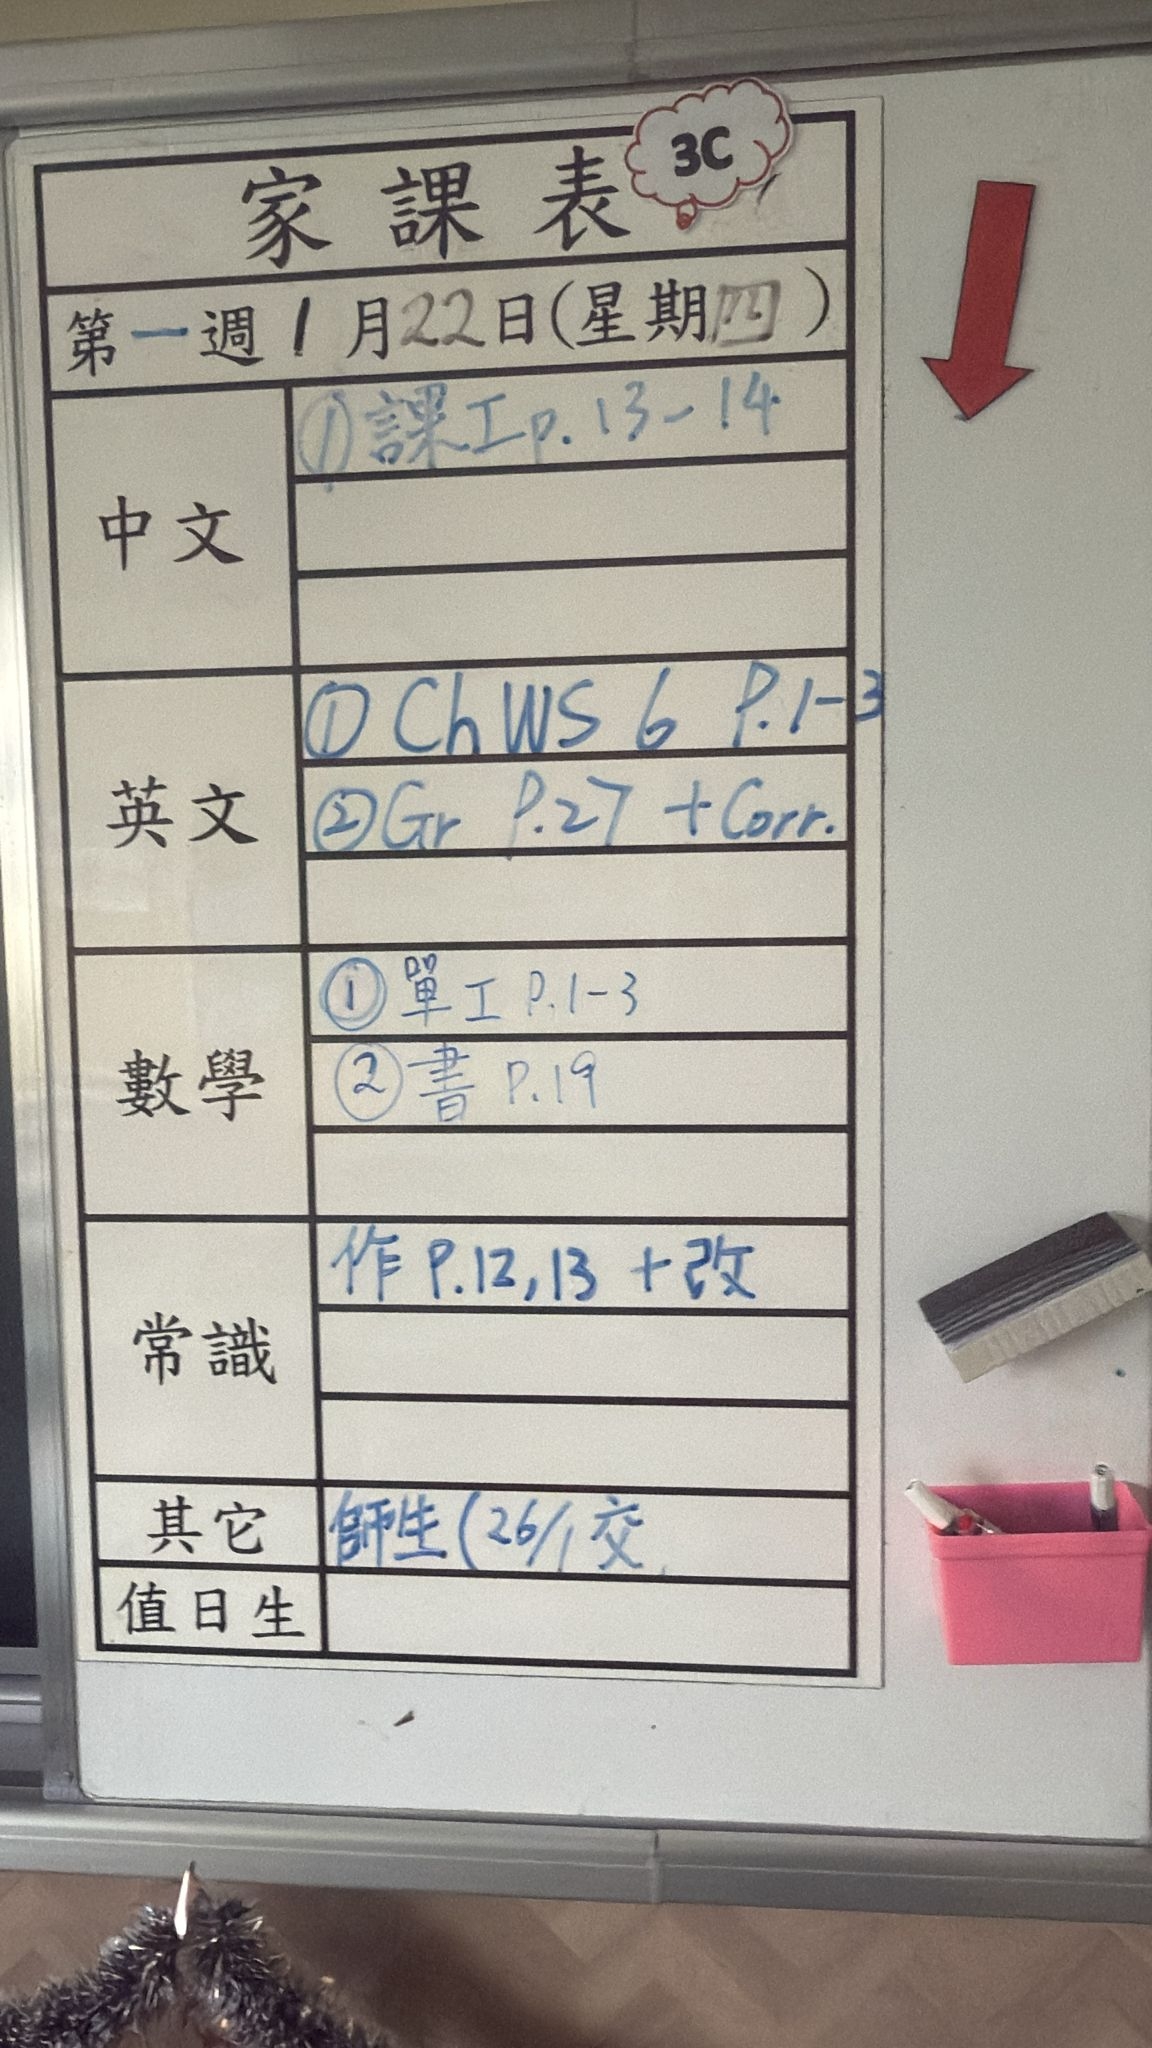 3C
家課表
第一週 1月22日(星期四)
中文
① 課工p.13-14
英文
① Ch WS 6 P.1-3
② Gr P.27 + Corr.
數學
① 單工 P.1-3
② 書 P.19
常識
作 P.12,13 + 改
其它
師生(26/1交
值日生